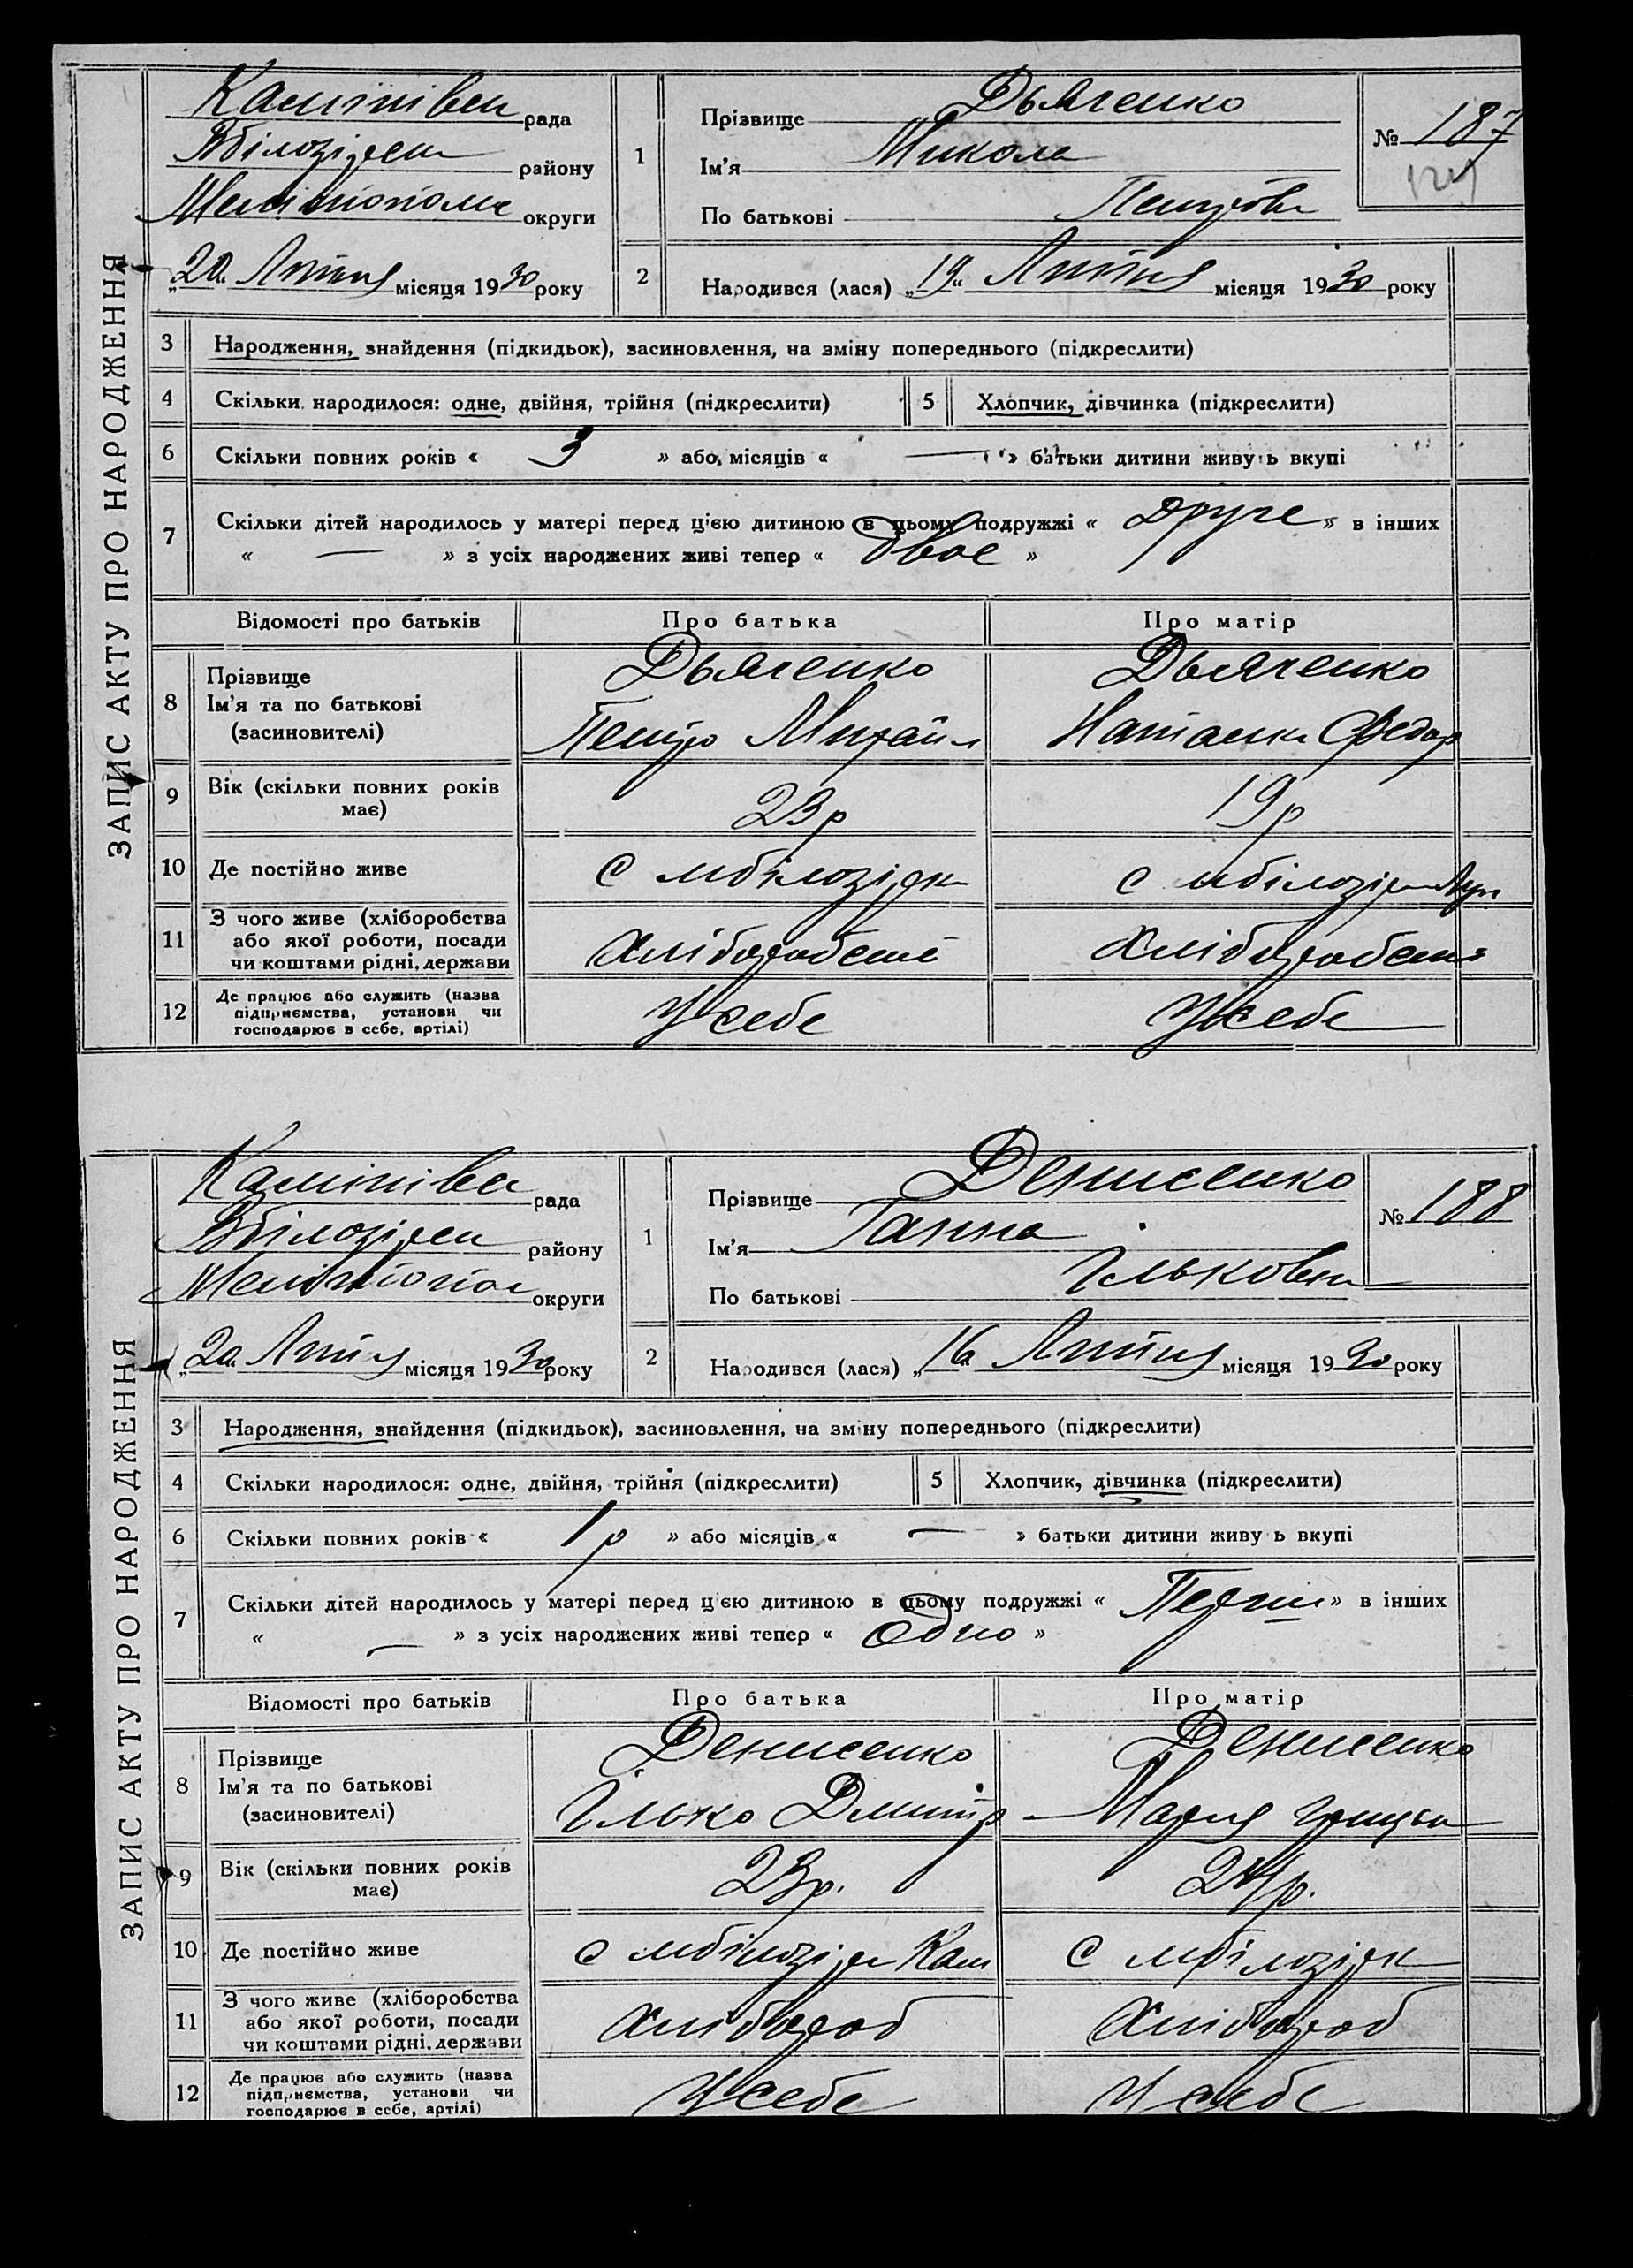 ЗАПИС АКТУ ПРО НАРОДЖЕННЯ
рада
району
округи
„20“ місяця 1930 року
1
Прізвище Дьяченко
Ім'я Микола
По батькові Петров
№ 187
2
Народився (лася) „19“ місяця 1930 року
3 Народження, знайдення (підкидьок), засиновлення, на зміну попереднього (підкреслити)
4 Скільки народилося: одне, двійня, трійня (підкреслити) 5 Хлопчик, дівчинка (підкреслити)
6 Скільки повних років « 3 » або місяців « — » батьки дитини живу ь вкупі
7 Скільки дітей народилось у матері перед цією дитиною в цьому подружжі « Друге » в інших
« — » з усіх народжених живі тепер « двоє »
Відомості про батьків Про батька Про матір
8 Прізвище Дьяченко Дьяченко
Ім'я та по батькові Петро Михайл Наталка Федор
(засновителі)
9 Вік (скільки повних років має) 23р 19р
10 Де постійно живе с мбілозірк с мбілозірк
11 З чого живе (хліборобства або якої роботи, посади чи коштами рідні, держави
12 Де працює або служить (назва підприємства, установи чи господарює в себе, артілі) У себе У себе
ЗАПИС АКТУ ПРО НАРОДЖЕННЯ
рада
району
округи
„20“ місяця 1930 року
1
Прізвище Денисенко
Ім'я Ганна
По батькові Ільковн
№ 188
2
Народився (лася) „16“ місяця 1930 року
3 Народження, знайдення (підкидьок), засиновлення, на зміну попереднього (підкреслити)
4 Скільки народилося: одне, двійня, трійня (підкреслити) 5 Хлопчик, дівчинка (підкреслити)
6 Скільки повних років « 1р » або місяців « — » батьки дитини живу ь вкупі
7 Скільки дітей народилось у матері перед цією дитиною в цьому подружжі « » в інших
« — » з усіх народжених живі тепер « одно »
Відомості про батьків Про батька Про матір
8 Прізвище Денисенко Денисенко
Ім'я та по батькові Ілько Дмитр Мария Грицьк
(засиновителі)
9 Вік (скільки повних років має) 23р. 24р.
10 Де постійно живе с мбілозірк Кам с мбілозірк
11 З чого живе (хліборобства або якої роботи, посади чи коштами рідні, держави Хлібороб Хлібороб
12 Де працює або служить (назва підприємства, установи чи господарює в себе, артілі) У себе У себе